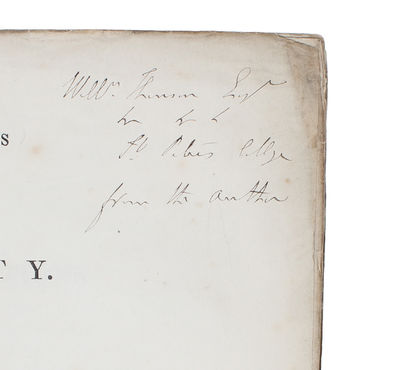 Willm Thomson Esqr
&c &c &c
s
St Peters College
from the author
T Y.